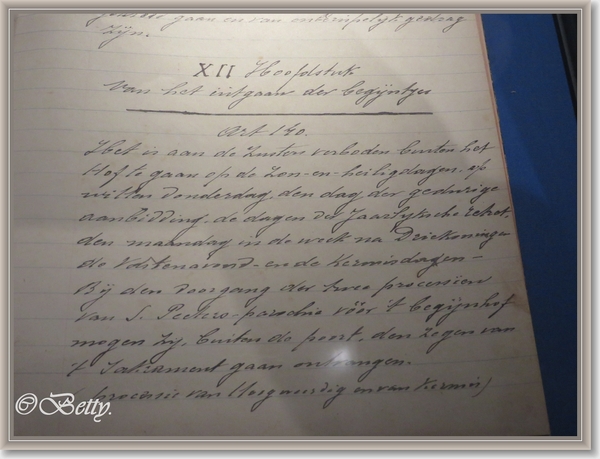 gaan en van onberispelijk gedrag
zijn.
XII Hoofdstuk
Van het uitgaan der begijntjes
Art 140.
Het is aan de Zusters verboden buiten het
Hof te gaan op de Zon- en heiligdagen, op
witten donderdag, den dag der gedurige
aanbidding, de dagen der Jaarlijksche retret,
den maandag in de week na Driekoningen
de Vastenavond- en de Kermisdagen -
Bij den doorgang der twee processiën
van S. Peeters-parochie vóór 't begijnhof
mogen zij, buiten de poort, den zegen van
't Sakrament gaan ontvangen.
(processie van Hoogweerdig en van Kermis)
©Betty.